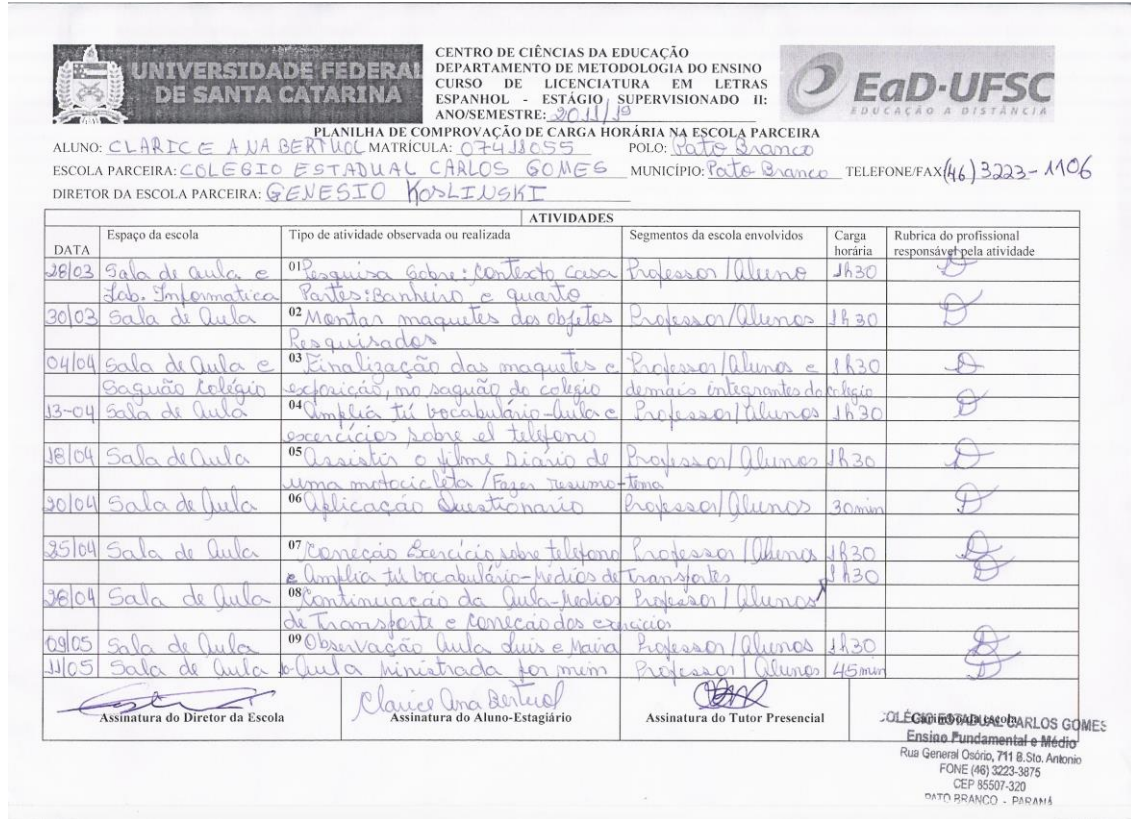 UNIVERSIDADE FEDERAL
DE SANTA CATARINA
CENTRO DE CIÊNCIAS DA EDUCAÇÃO
DEPARTAMENTO DE METODOLOGIA DO ENSINO
CURSO DE LICENCIATURA EM LETRAS
ESPANHOL - ESTÁGIO SUPERVISIONADO II:
ANO/SEMESTRE: 2011/1º
EaD-UFSC
EDUCAÇÃO A DISTÂNCIA
PLANILHA DE COMPROVAÇÃO DE CARGA HORÁRIA NA ESCOLA PARCEIRA
ALUNO: CLARICE ANA BERTUOL MATRÍCULA: 07418055 POLO: Pato Branco
ESCOLA PARCEIRA: COLEGIO ESTADUAL CARLOS GOMES MUNICÍPIO: Pato Branco TELEFONE/FAX (46) 3223-1106
DIRETOR DA ESCOLA PARCEIRA: GENESIO KOSLINSKI
ATIVIDADES
DATA Espaço da escola Tipo de atividade observada ou realizada Segmentos da escola envolvidos Carga horária Rubrica do profissional responsável pela atividade
28/03 Sala de aula e 01 Pesquisa sobre: contexto casa Professor/aluno 1h30
Lab. Informatica Partes: Banheiro e quarto
30/03 Sala de Aula 02 Montar maquetes dos objetos Professor/Alunos 1h30
Pesquisados
04/04 Sala de Aula e 03 Finalização das maquetes e Professor/Alunos e 1h30
Saguão Colégio exposição, no saguão do colégio demais integrantes do colégio
13-04 Sala de Aula 04 Amplia tú vocabulário-Aula e Professor/Alunos 1h30
excercícios sobre el teléfono
18/04 Sala de Aula 05 Assistir o filme Diário de Professor/Alunos 1h30
uma motocicleta/Fazer resumo-tema
20/04 Sala de Aula 06 Aplicação Questionario Professor/Alunos 30min
25/04 Sala de Aula 07 Correção Exercício sobre teléfono Professor/Alunos 1h30
e Amplia tú vocabulário-Medios de Transportes 1h30
26/04 Sala de Aula 08 Continuação da Aula-Medios Professor/Alunos
de Transporte e correção dos exercicios
09/05 Sala de Aula 09 Observação Aula Luis e Maira Professor/Alunos 1h30
11/05 Sala de Aula 10 Aula ministrada por mim Professor/Alunos 45min
Clarice Ana Bertuol
Assinatura do Diretor da Escola Assinatura do Aluno-Estagiário Assinatura do Tutor Presencial Carimbo da escola
COLÉGIO ESTADUAL CARLOS GOMES
Ensino Fundamental e Médio
Rua General Osório, 711 B.Sto. Antonio
FONE (46) 3223-3875
CEP 85507-320
PATO BRANCO - PARANÁ